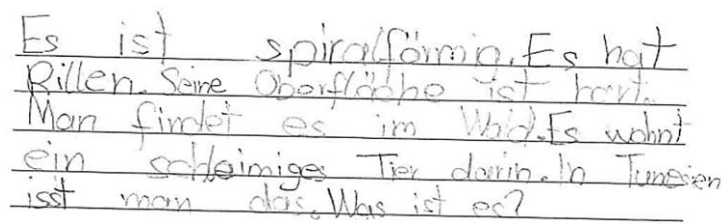 Es ist spiralförmig. Es hat
Rillen. Seine Oberfläche ist hart.
Man findet es im Wald. Es wohnt
ein schleimiges Tier darin. In Tunesien
isst man das. Was ist es?